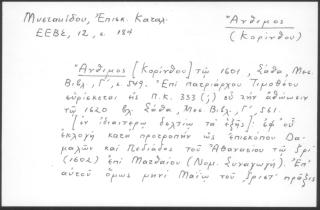 Μυστακίδου, Ἐπισκ. Καταλ.
ΕΕΒΣ, 12, σ. 184
Ἄνθιμος
(Κορίνθου)
Ἄνθιμος [Κορίνθου] τῷ 1601, Σάθα, Μεσ.
Βιβλ. Γ΄, σ. 549. Ἐπὶ πατριάρχου Τιμοθέου
εὑρίσκεται ἐν Π.Κ. 333 (;) ἐν τῇ ἀθωώσει
τῷ 1620 βλ. Σάθα, Μεσ. Βιβλ., Γ΄, 561.
[ἐν ἰδιαιτέρῳ δελτίῳ τὰ ἑξῆς]: ἐφ' οὗ
ἐκλογὴ κατὰ προτροπὴν ὡς ἐπισκόπου Δα-
μαλῶν καὶ Πεδιάδος τοῦ Ἀθανασίου τῷ
(1602) ἐπὶ Ματθαίου (Νομ. Συναγωγή). Ἐπ'
αὐτοῦ ὅμως μηνὶ Μαΐῳ τοῦ πρᾶξις